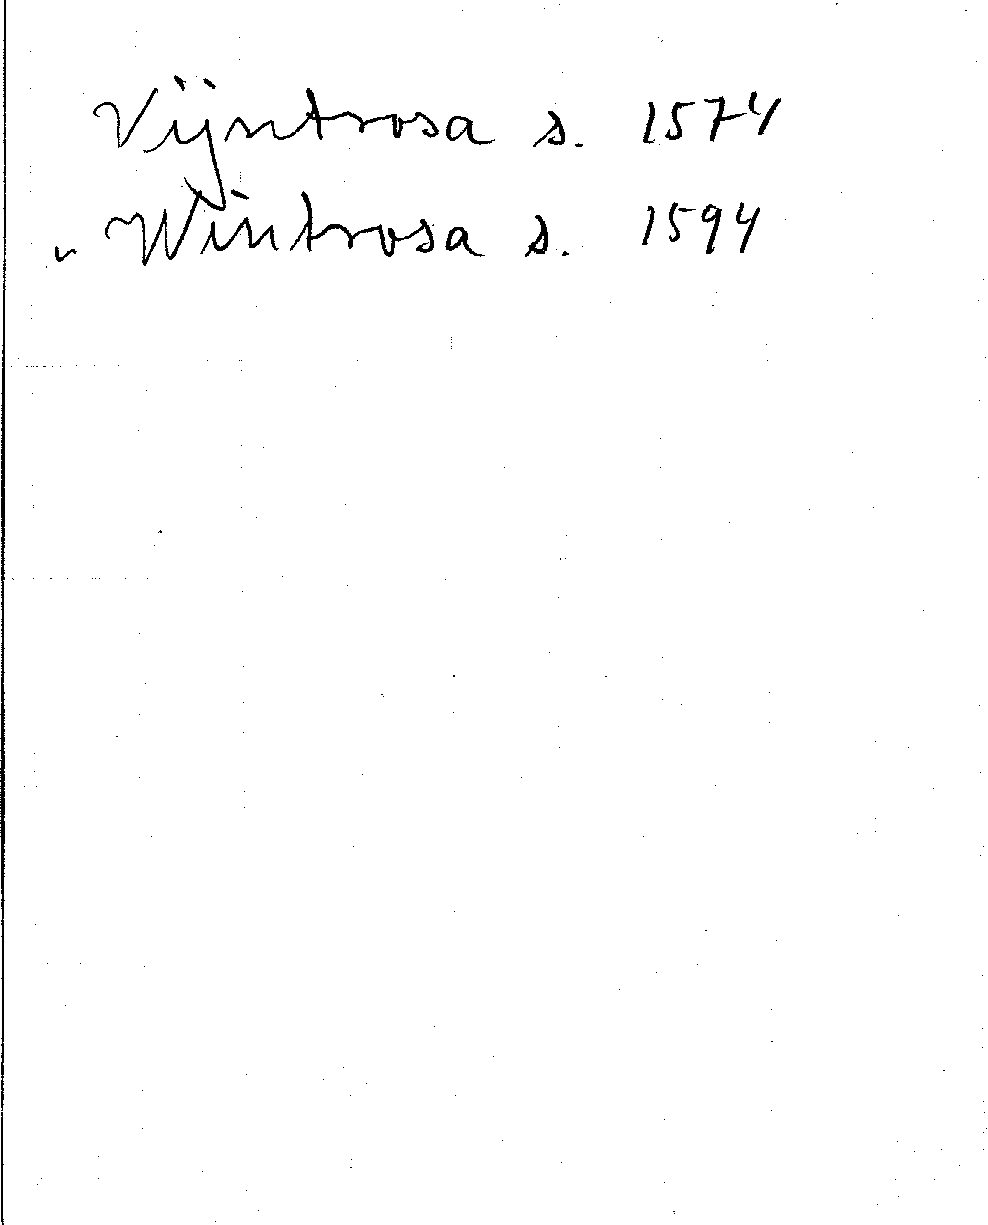 Vijntrosa s. 1574
v Wintrosa s. 1594